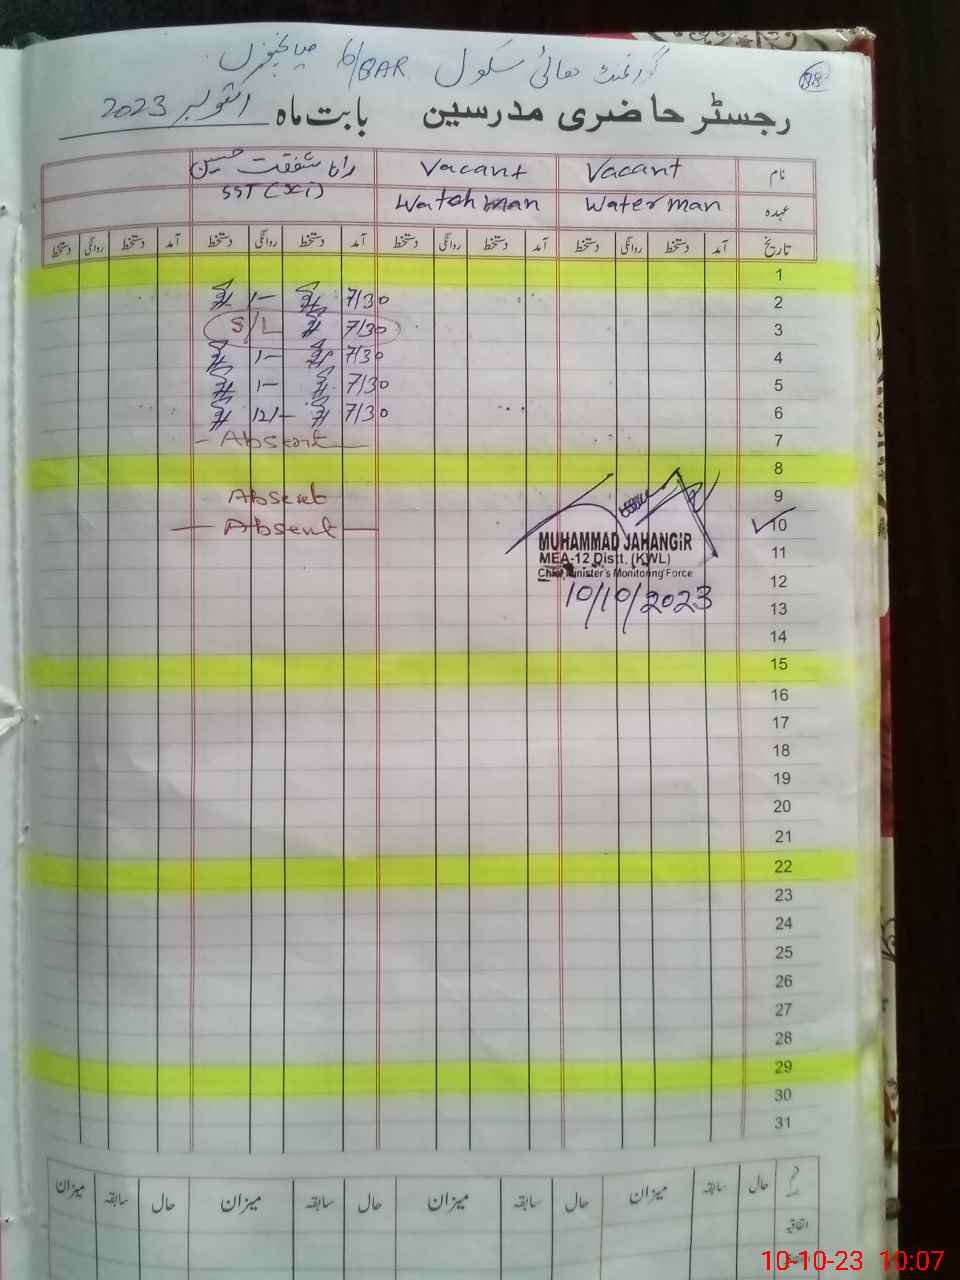 گورنمنٹ ہائی سکول 6/8AR میانچنوں
رجسٹر حاضری مدرسین بابت ماہ اکتوبر 2023
نام Vacant Vacant رانا شفقت حسین
عہدہ Waterman Watchman SST (Sci)
تاریخ آمد دستخط روانگی دستخط آمد دستخط روانگی دستخط آمد دستخط روانگی دستخط آمد دستخط روانگی دستخط
1
2 7/30 1/-
3 7/30 S/L
4 7/30 1/-
5 7/30 1/-
6 7/30 12/-
7 Absent
8
9 Absent
10 Absent
MUHAMMAD JAHANGIR
11
MEA-12 Distt. (KWL)
Chief Minister's Monitoring Force
12
10/10/2023
13
14
15
16
17
18
19
20
21
22
23
24
25
26
27
28
29
30
31
حال سابقہ میزان حال سابقہ میزان حال سابقہ میزان حال سابقہ میزان
اتفاقیہ
10-10-23 10:07